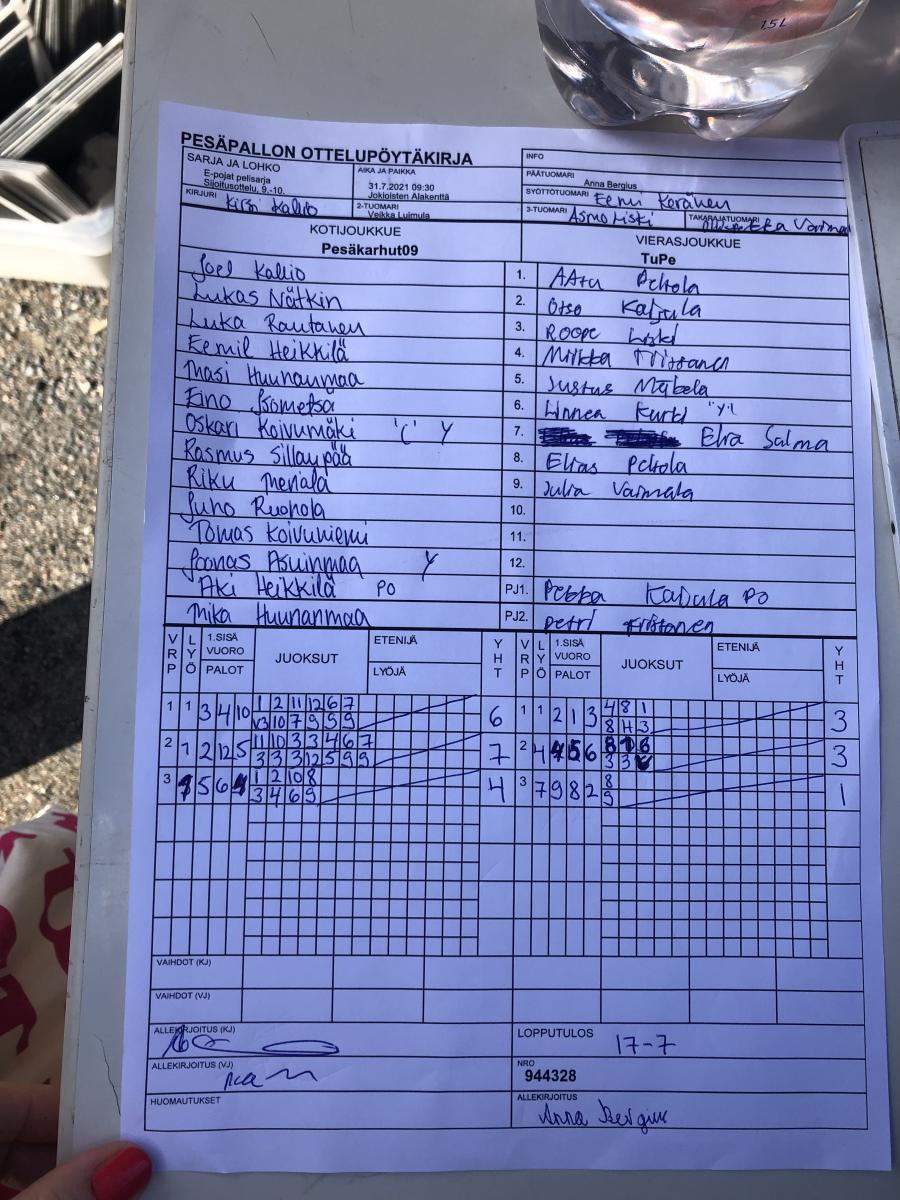 1.5L
PESÄPALLON OTTELUPÖYTÄKIRJA
INFO
SARJA JA LOHKO
E-pojat pelisarja
Sijoitusottelu, 9.-10.
AIKA JA PAIKKA
31.7.2021 09:30
Jokioisten Alakenttä
PÄÄTUOMARI
Anna Bergius
SYÖTTÖTUOMARI Eemi Keränen
KIRJURI Kirsi Kallio
2-TUOMARI
Veikka Luimula
3-TUOMARI Asmo Liski
TAKARAJATUOMARI
KOTIJOUKKUE
Pesäkarhut09
VIERASJOUKKUE
TuPe
Joel Kallio 1. AAtu Peltola
Lukas Nätkin 2. Otso Kaijula
Luka Rautanen 3. Roope Liski
Eemil Heikkilä 4. Miikka
Masi Huunanmaa 5. Justus Mäkelä
Eino Isometsä 6. Linnea
Oskari Koivumäki "C" Y 7. Elra Salma
Rasmus Sillanpää 8. Elias Peltola
Riku 9. Julia Vainiala
Juho Ruohola 10.
Tomas Koivuniemi 11.
Joonas Asuinmaa Y 12.
Aki Heikkilä PO PJ1. Pekka Kaijula PO
Mika Huunanmaa PJ2. Petri
VRP LYÖ 1.SISÄ VUORO PALOT JUOKSUT ETENIJÄ LYÖJÄ YHT VRP LYÖ 1.SISÄ VUORO PALOT JUOKSUT ETENIJÄ LYÖJÄ YHT
1 1 3 4 10 1 2 11 12 6 7 6 1 1 2 1 3 4 8 1 3
V3 10 7 9 9 9 8 4 3
2 1 2 12 5 11 10 3 3 4 6 7 7 2 4 5 6 8 6 3
3 3 3 12 5 9 9 3 3
3 5 6 1 2 10 8 4 3 7 9 8 2 8 1
3 4 6 9 9
VAIHDOT (KJ)
VAIHDOT (VJ)
ALLEKIRJOITUS (KJ)
LOPPUTULOS 17-7
ALLEKIRJOITUS (VJ)
NRO
944328
HUOMAUTUKSET
ALLEKIRJOITUS
Anna Bergius